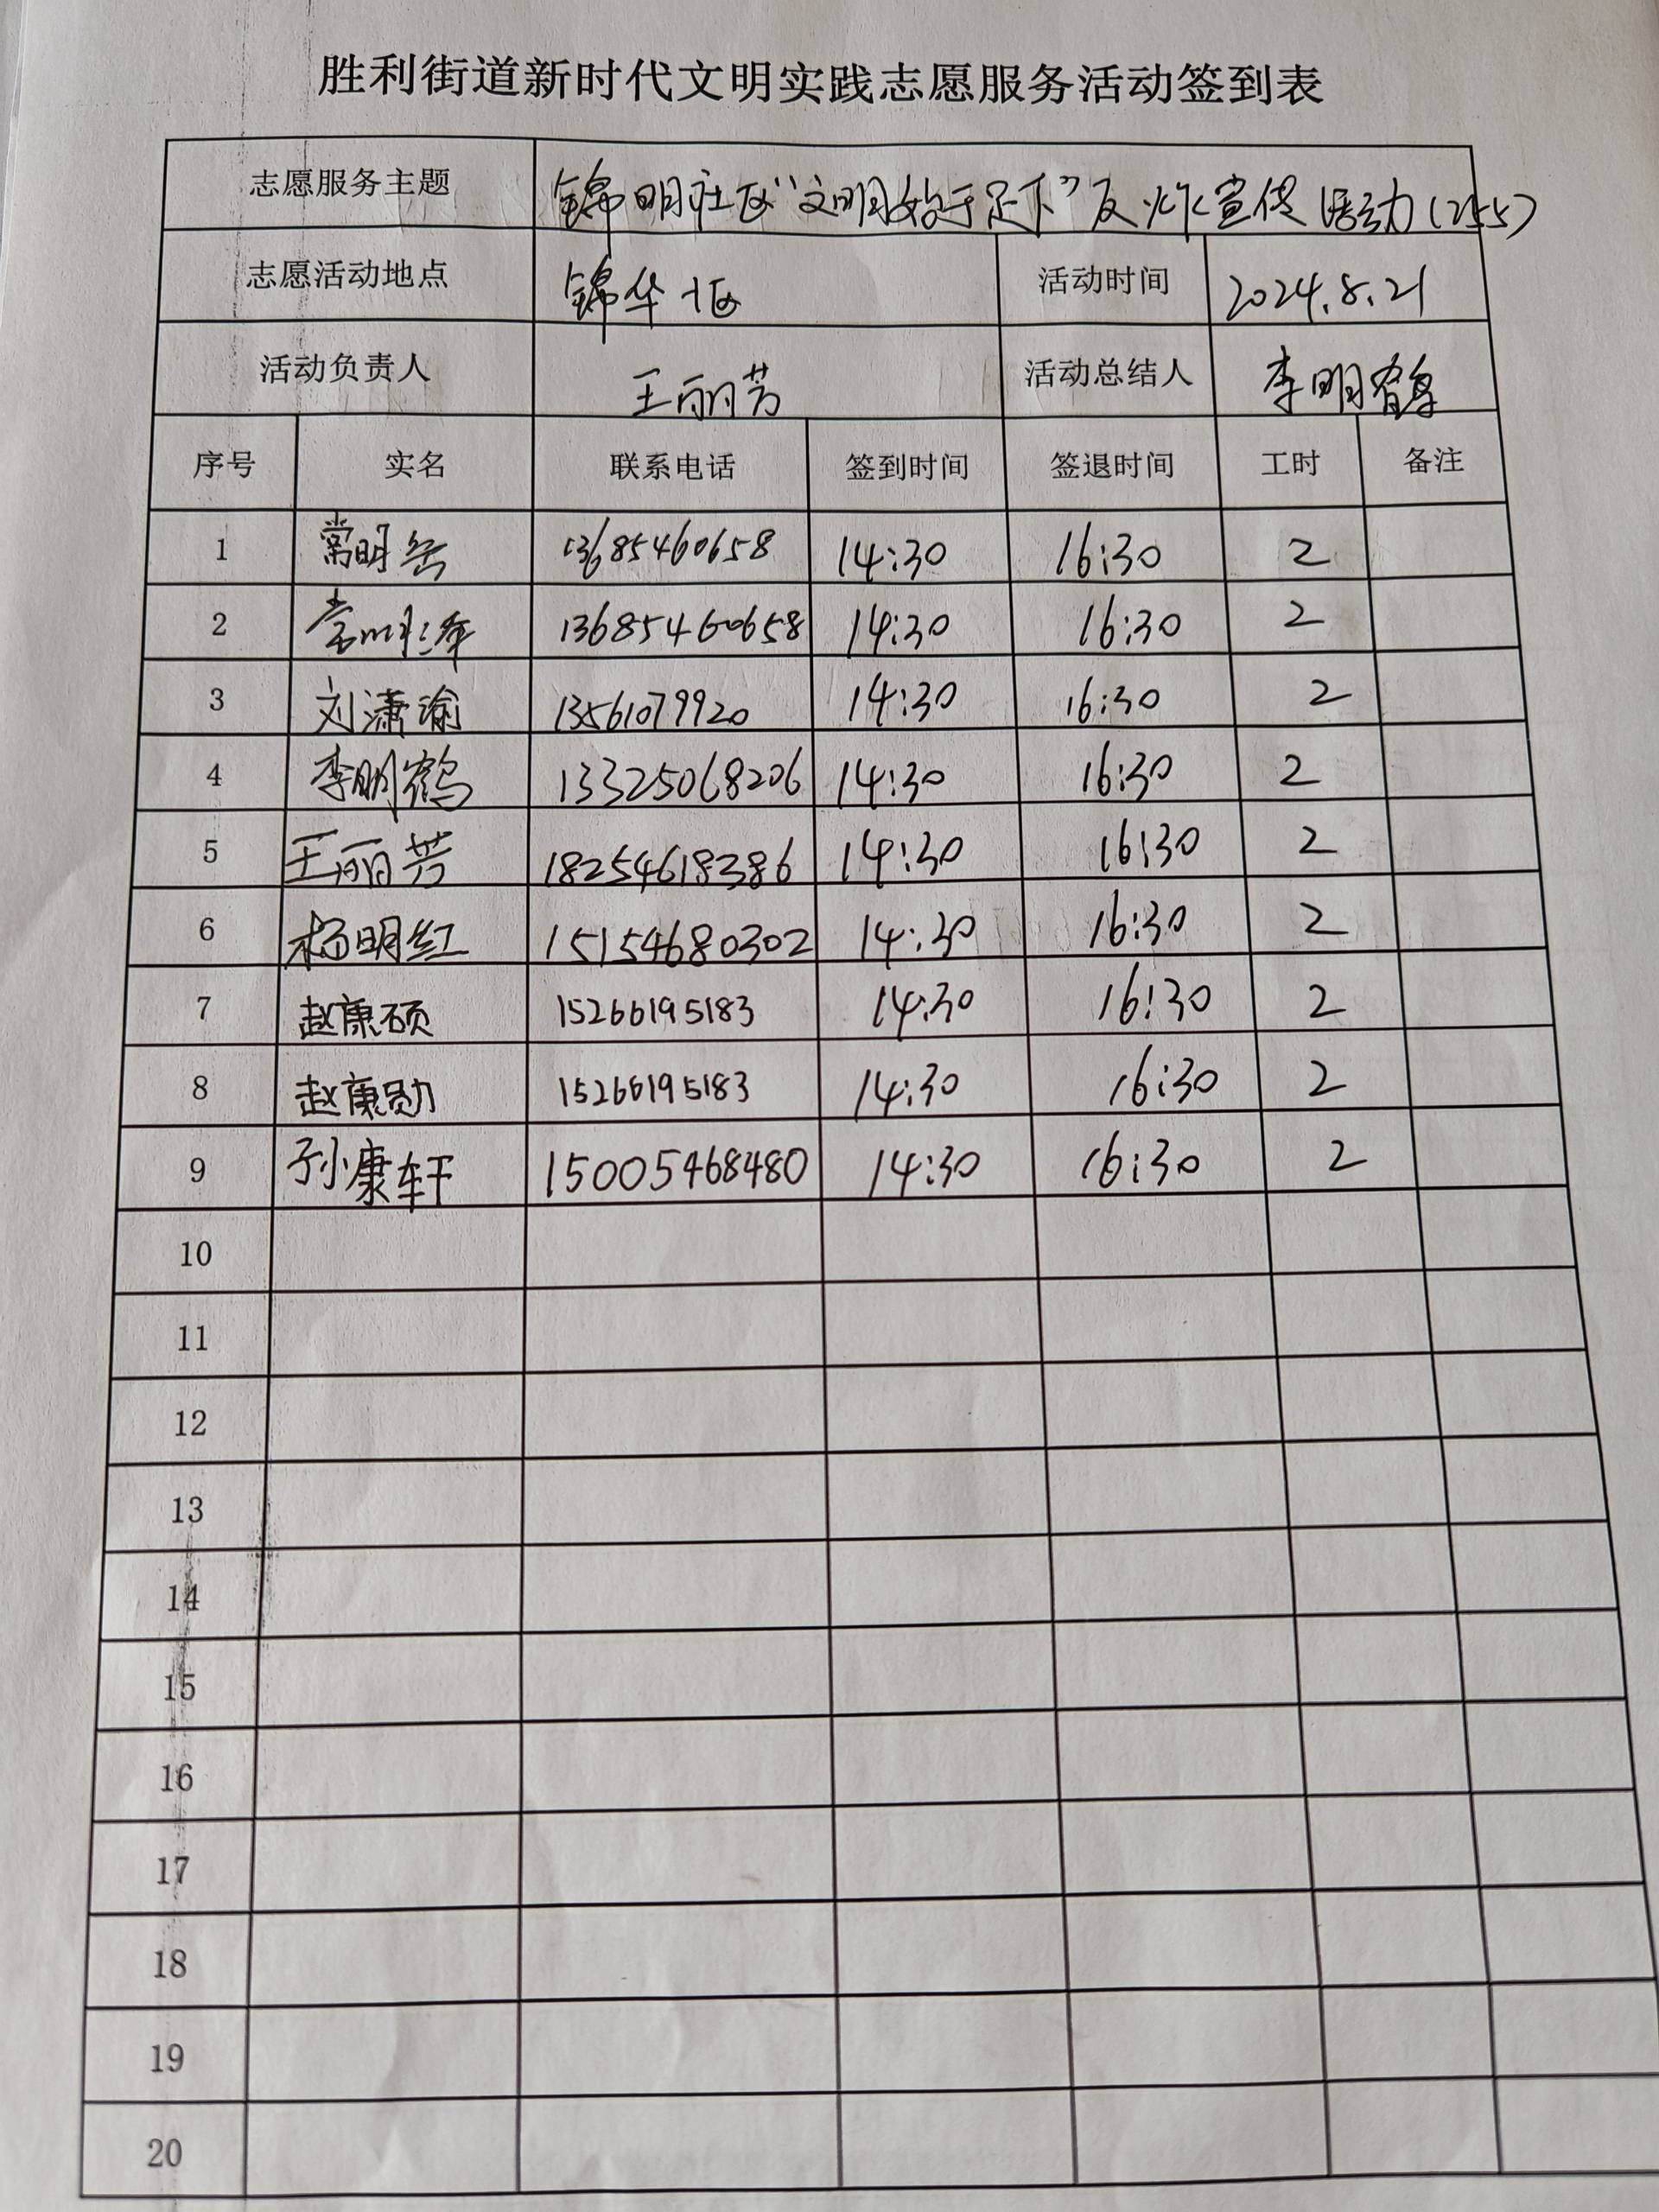 胜利街道新时代文明实践志愿服务活动签到表
志愿服务主题 锦明社区“文明始于足下”反炸宣传活动(255)
志愿活动地点 锦华一区 活动时间 2024.8.21
活动负责人 王丽芳 活动总结人 李明鹤
序号 实名 联系电话 签到时间 签退时间 工时 备注
1 常明岳 13685460658 14:30 16:30 2
2 常 13685460658 14:30 16:30 2
3 刘潇渝 13561079920 14:30 16:30 2
4 李明鹤 13325068206 14:30 16:30 2
5 王丽芳 18254618386 14:30 16:30 2
6 杨明红 15154680302 14:30 16:30 2
7 赵康硕 15266195183 14:30 16:30 2
8 赵康勋 15266195183 14:30 16:30 2
9 孙康轩 15005468480 14:30 16:30 2
10
11
12
13
14
15
16
17
18
19
20